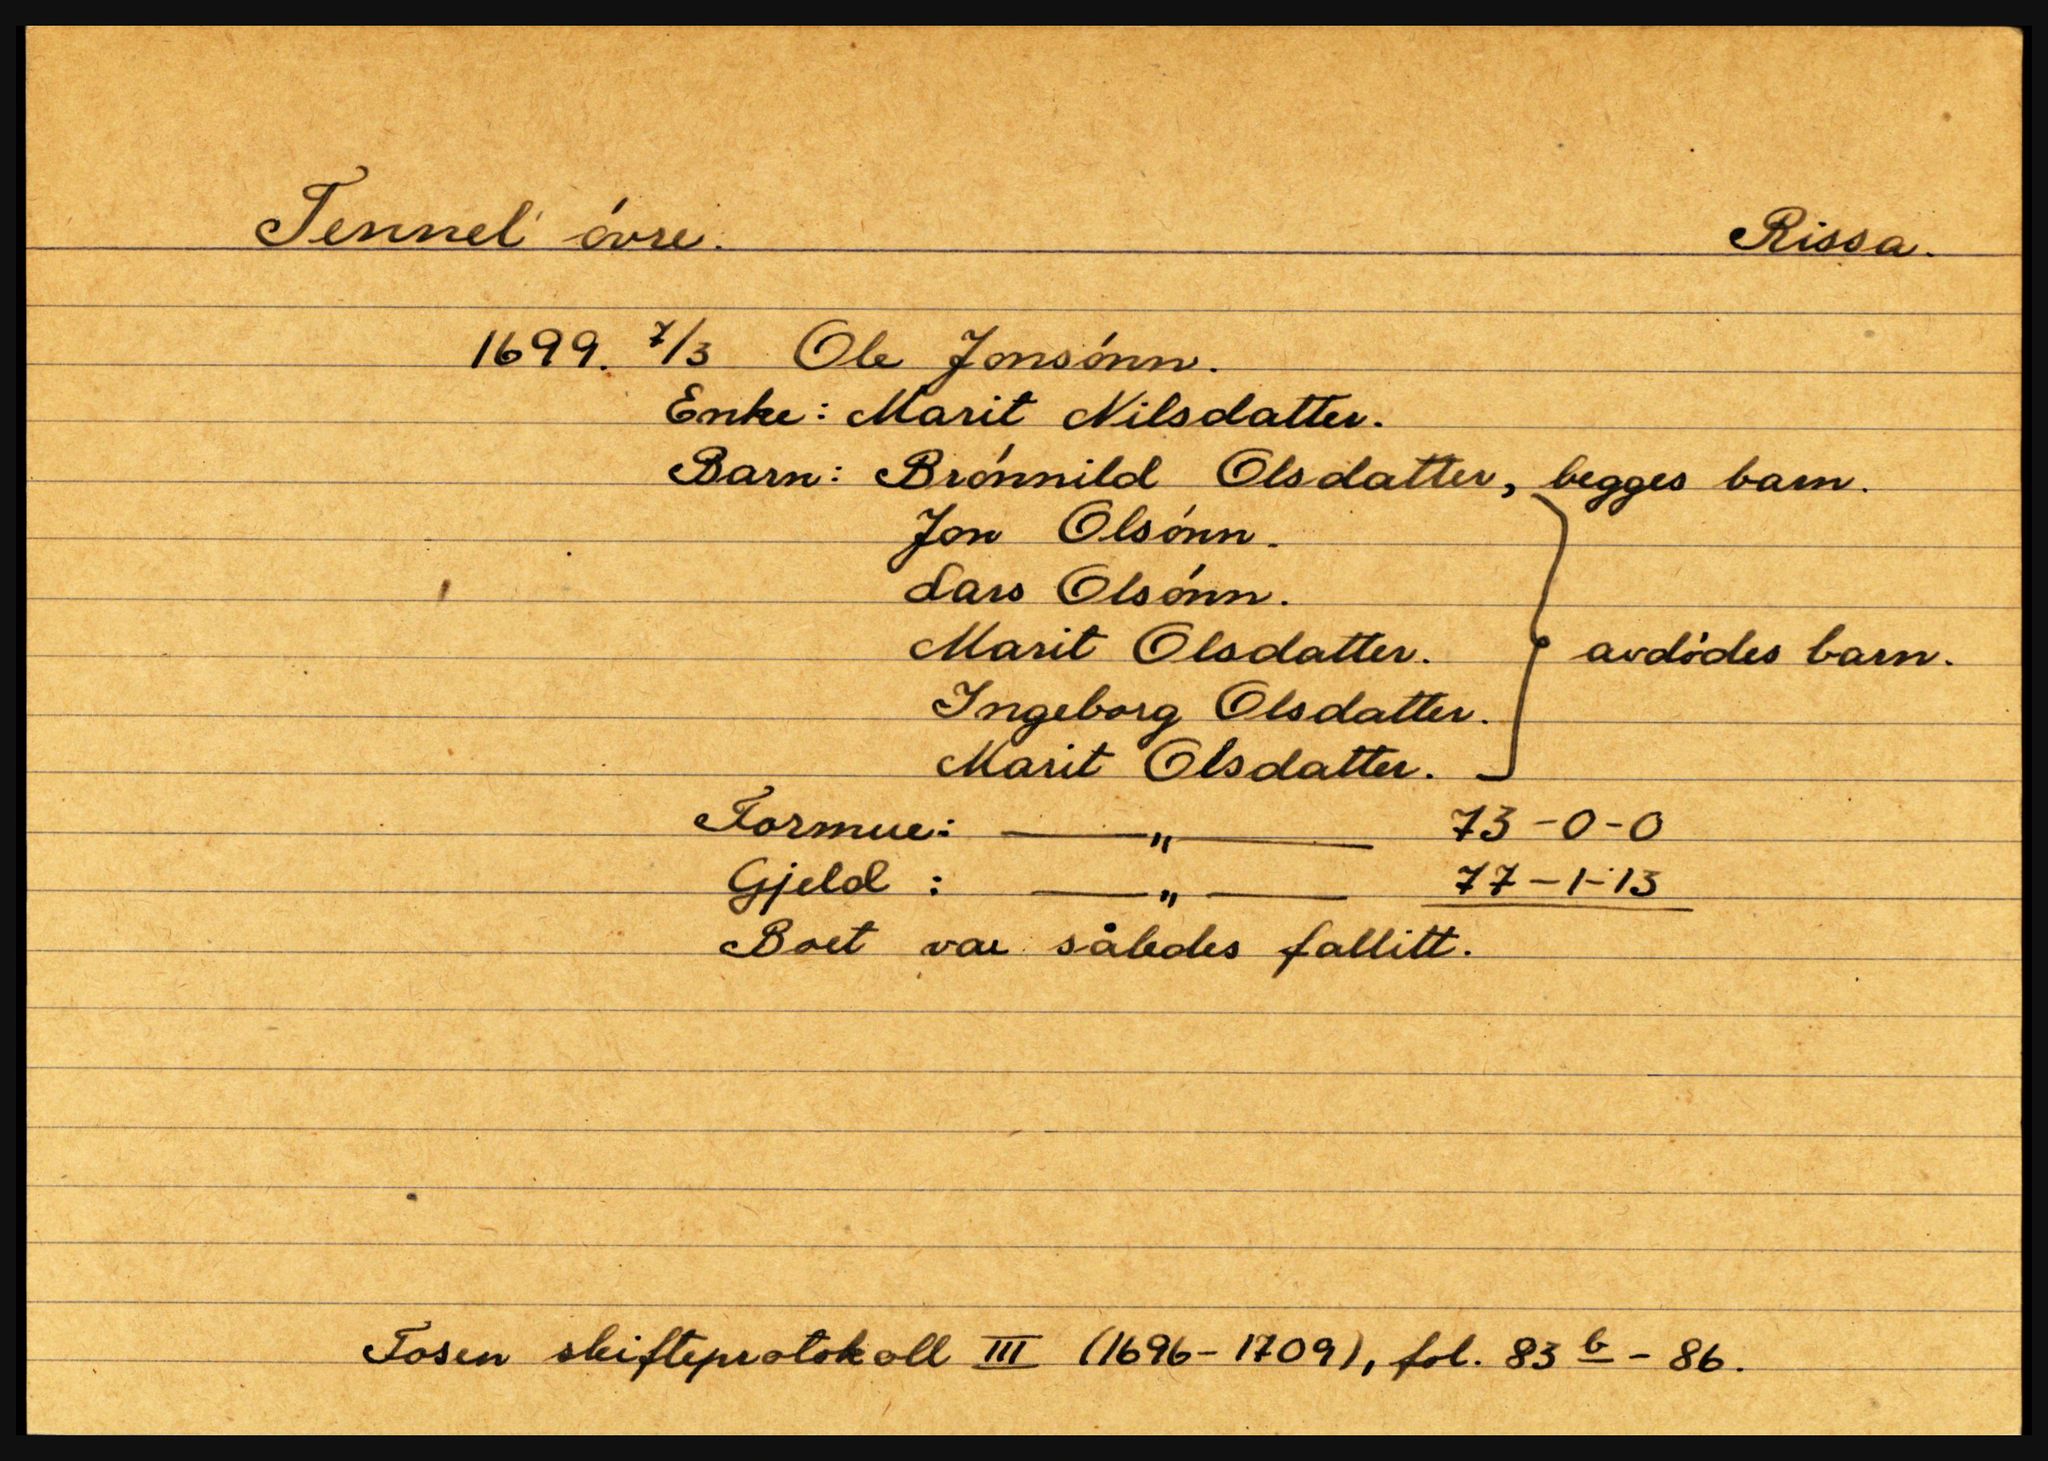 Tennel øvre. Rissa.
1699. 7/3 Ole Jonsønn.
Enke: Marit Nilsdatter.
Barn: Brønnild Olsdatter, begges barn.
Jon Olsønn.
Lars Olsønn.
Marit Olsdatter. } avdødes barn.
Ingeborg Olsdatter.
Marit Olsdatter.
Formue: —— " —— 73-0-0
Gjeld : —— " —— 77-1-13
Boet var således fallitt.
Fosen skifteprotokoll III (1696-1709), fol. 83 b - 86.